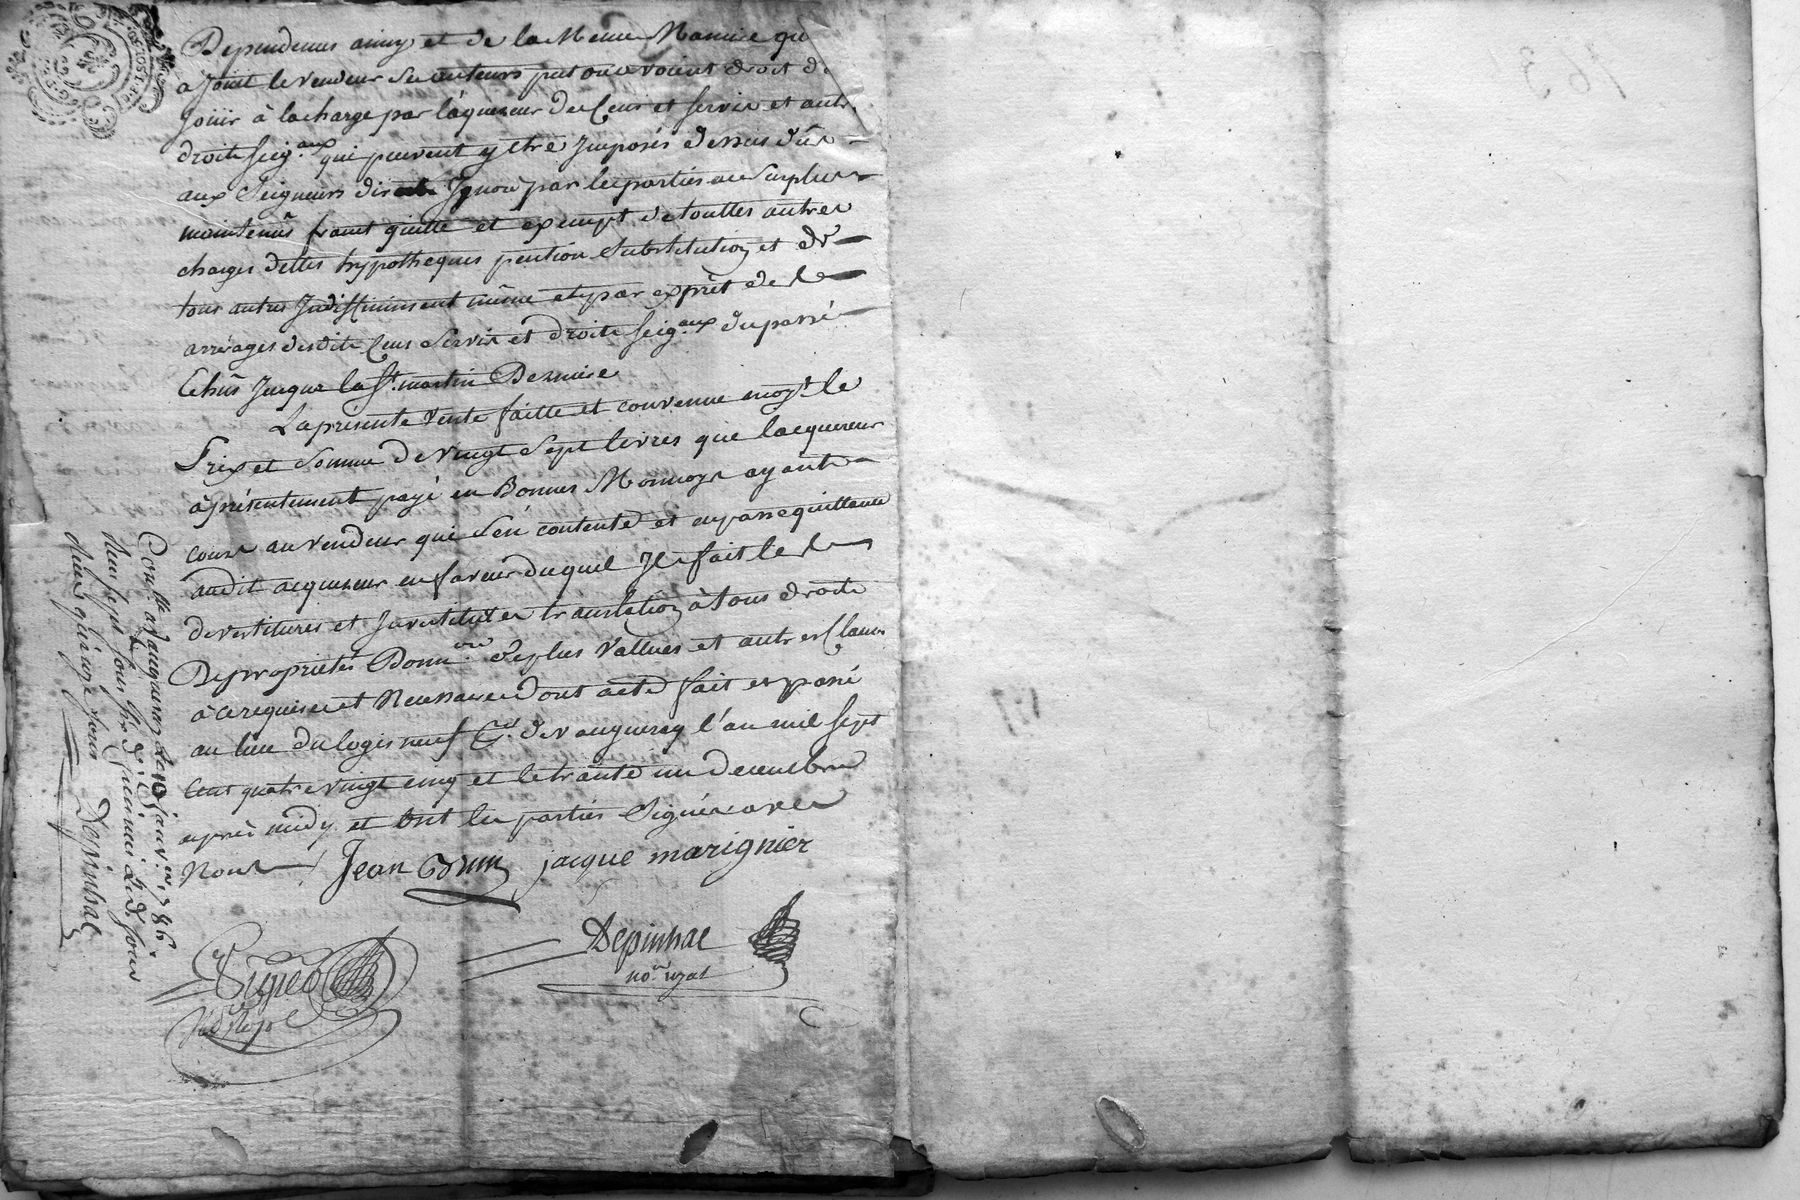 Dependences ainsy et de la Meme Maniere qu
a Jouit le vendeur Ses auteurs put ou avoient droit d
Joüir à la charge par l'aquereur des Cens et servis et autr
droits seig.aux qui peuvent y etre Imposés dessus dûs
aux Seigneurs directs Ignoré par les parties au Surplus
maintenûs franct quitte et exempt de touttes autres
charges dettes hypotheques pention Substitution et de
tous autres Indistinctement même et par exprêt de
arrérages desdits Cens Servis et droits Seig.aux du passé
Echûs Jusque la St. martin Derniere
La presente vente faitte et convenue moy.t le
Prix et Somme de vingt Sept livres que lacquereur
à présentement payé en Bonnes Monnoye ayants
cours au vendeur qui S'en contente et en passe quittance
audit acquereur en faveur duquel Il fait les
devestitures et Investitures translation à tous droits
De proprietés Donn.on de plus Vallues et autres Clauses
à ce requises et Necessaires Dont acte fait et passé
au lieu du logis neuf de vaugneray l'an mil sept
Cent quatre vingt cinq et le trante un decembre
après midy et ont les parties Signée avec
Nous
Jean jacque marignier
Depinhac
no.re royal
Con.lle a Vaugneray le 10 Janv. 1786
Reçu sept sous
sieurs quinze sous Depinhac